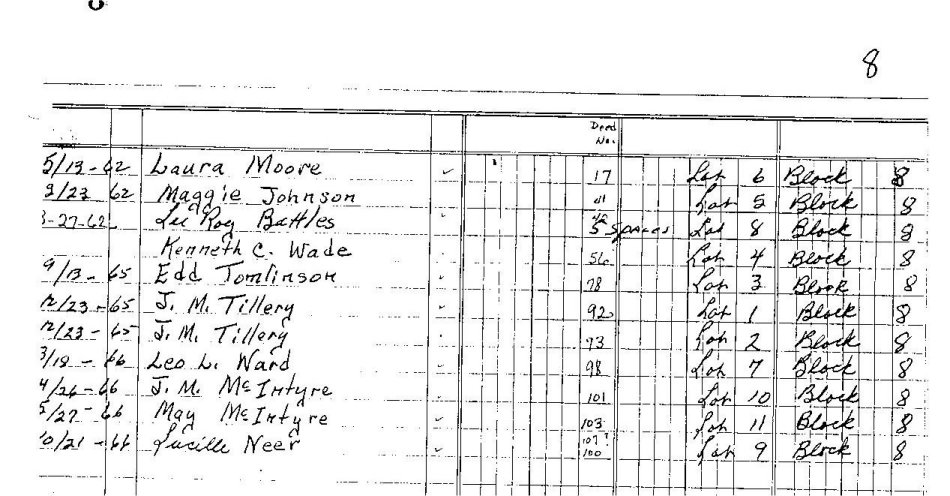 8
Deed
No.
5/13-62 Laura Moore 17 Lot 6 Block 8
3/23 62 Maggie Johnson 41 Lot 5 Block 8
-27-62 Lee Roy Battles 5 spaces Lot 8 Block 8
Kenneth C. Wade 56 Lot 4 Block 8
9/13-65 Edd Tomlinson 78 Lot 3 Block 8
12/23-65 J. M. Tillery 92 Lot 1 Block 8
12/23-65 J. M. Tillery 93 Lot 2 Block 8
3/19-66 Leo L. Ward 98 Lot 7 Block 8
4/26-66 J. M. McIntyre 101 Lot 10 Block 8
5/27-66 May McIntyre 103 Lot 11 Block 8
10/21-66 Lucille Neer 100 Lot 9 Block 8